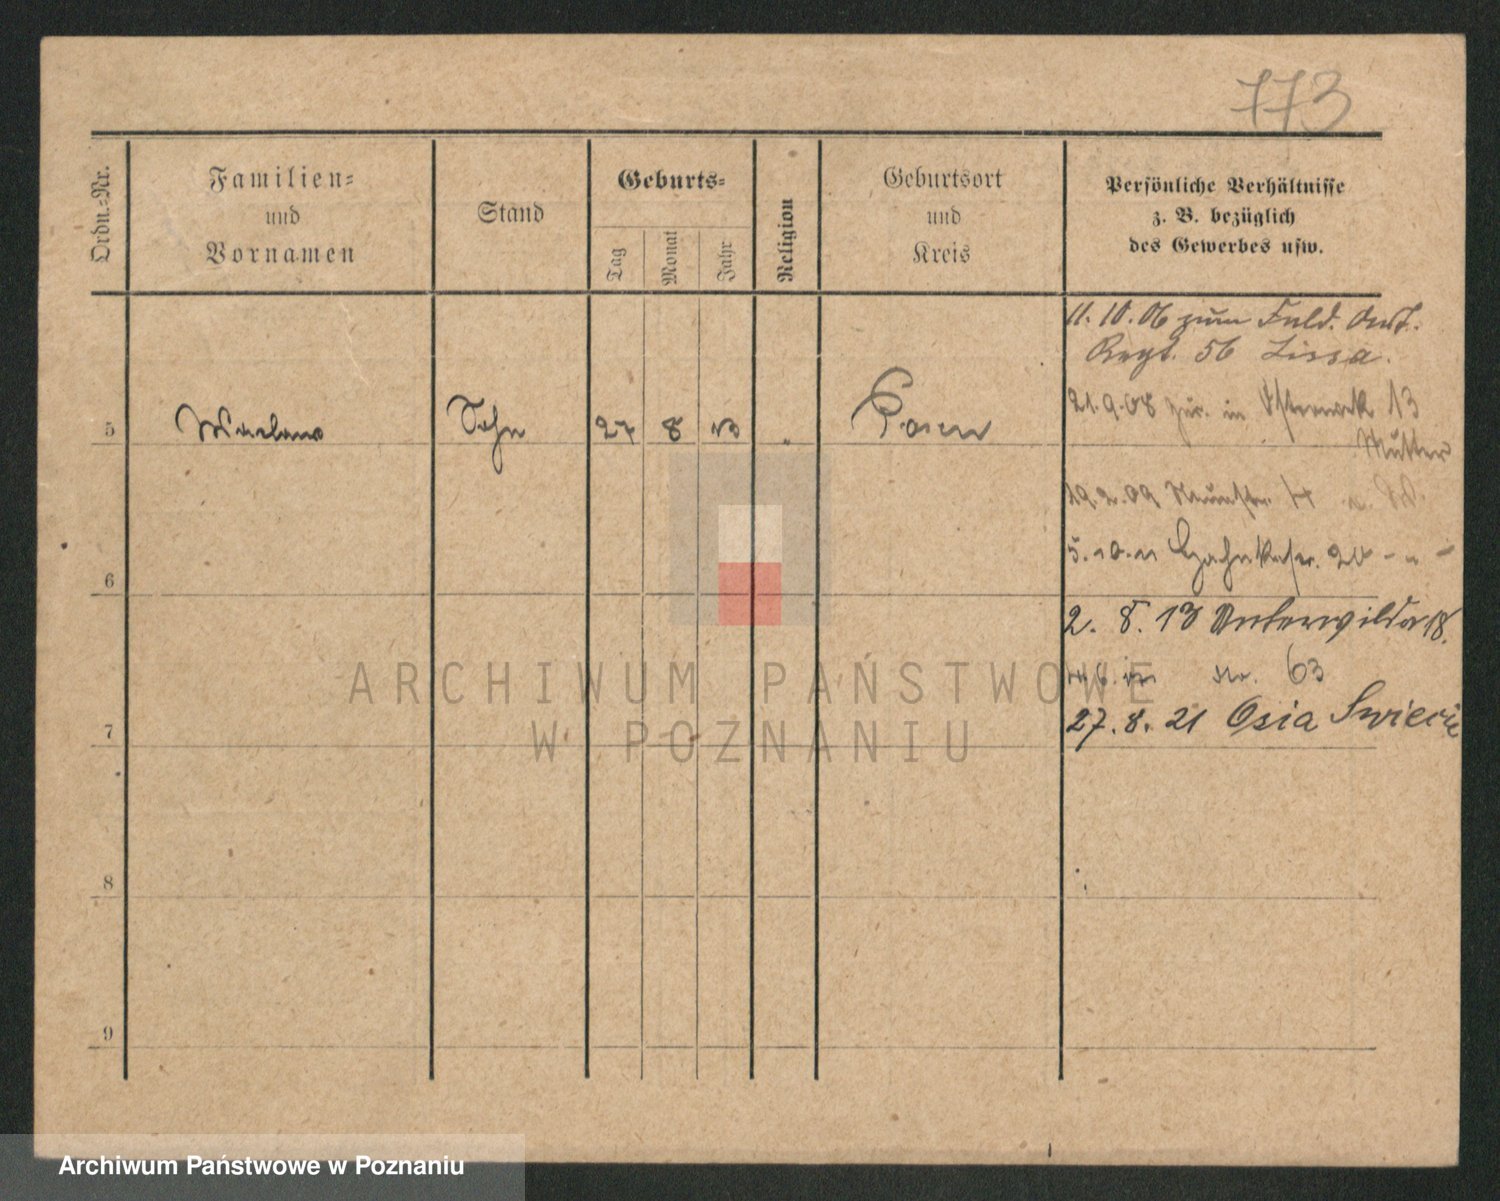 773
Ordn.-Nr.
Familien-
und
Vornamen
Stand
Geburts-
Tag
Monat
Jahr
Religion
Geburtsort
und
Kreis
Persönliche Verhältnisse
z. B. bezüglich
des Gewerbes usw.
11. 10. 06 zum Feld. Art.
Regt. 56 Lissa.
21.9.08 zur. in 13
Mutter
5 Waclaw Sohn 27 8 13 " Posen
19.2.09
5.10.11 20 - " -
6
2. 8. 13 Unterwilda 18.
63
27. 8. 21 Osia Swiecie
7
8
9
ARCHIWUM PAŃSTWOWE
W POZNANIU
Archiwum Państwowe w Poznaniu